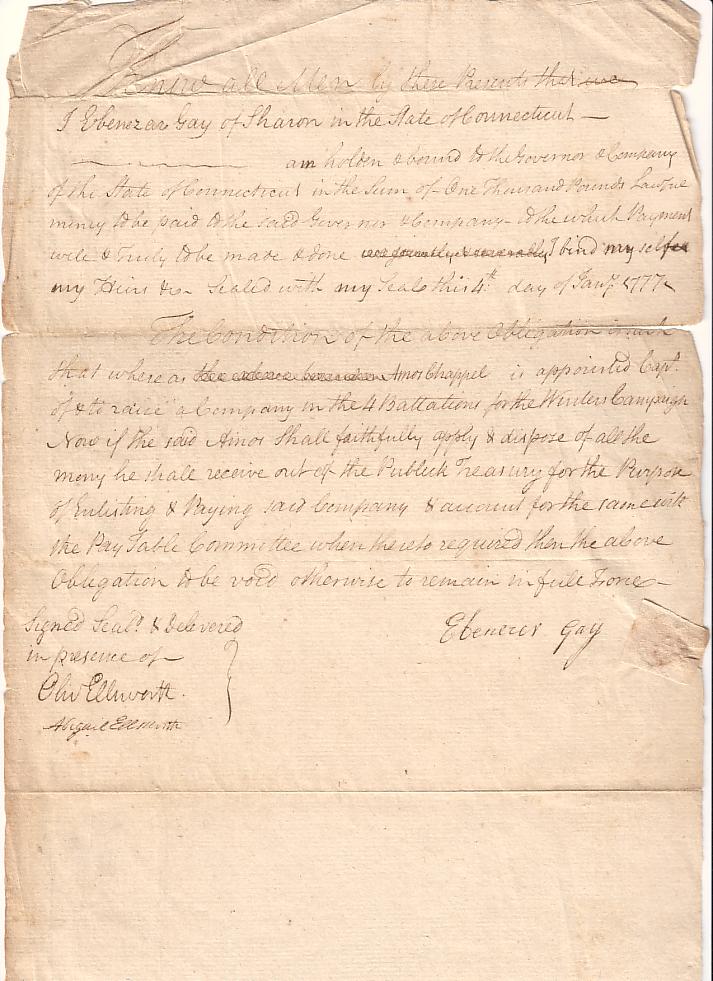 Know all Men by these Presents that we
I Ebenezar Gay of Sharon in the State of Connecticut —
am holden & bound to the Governor & Company
of the State of Connecticut in the Sum of One Thousand Pounds Lawfue
money to be paid to the said Governor & Company - to the which Payment
well & Truly to be made & done we joyntly & severally I bind my self
my Heirs &c - Sealed with my Seal this 4th day of Jany 1777
The Condition of the above Obligation is such
that where as the above bounden Amos Chappel is appointed Capt.
of & to raise a Company in the 4 Battations for the Winters Campaign
Now if the said Amos Shall faithfully apply & dispose of all the
mony he shall receive out of the Publick Treasury for the Purpose
of Enlisting & Paying said Company & account for the same with
the Pay Table Committee when thereto required then the above
Obligation to be void otherwise to remain in full Force -
Signed Seald. & Delivered
in presence of
Ebenezer Gay
Oliv Ellsworth.
Abigail Ellsworth